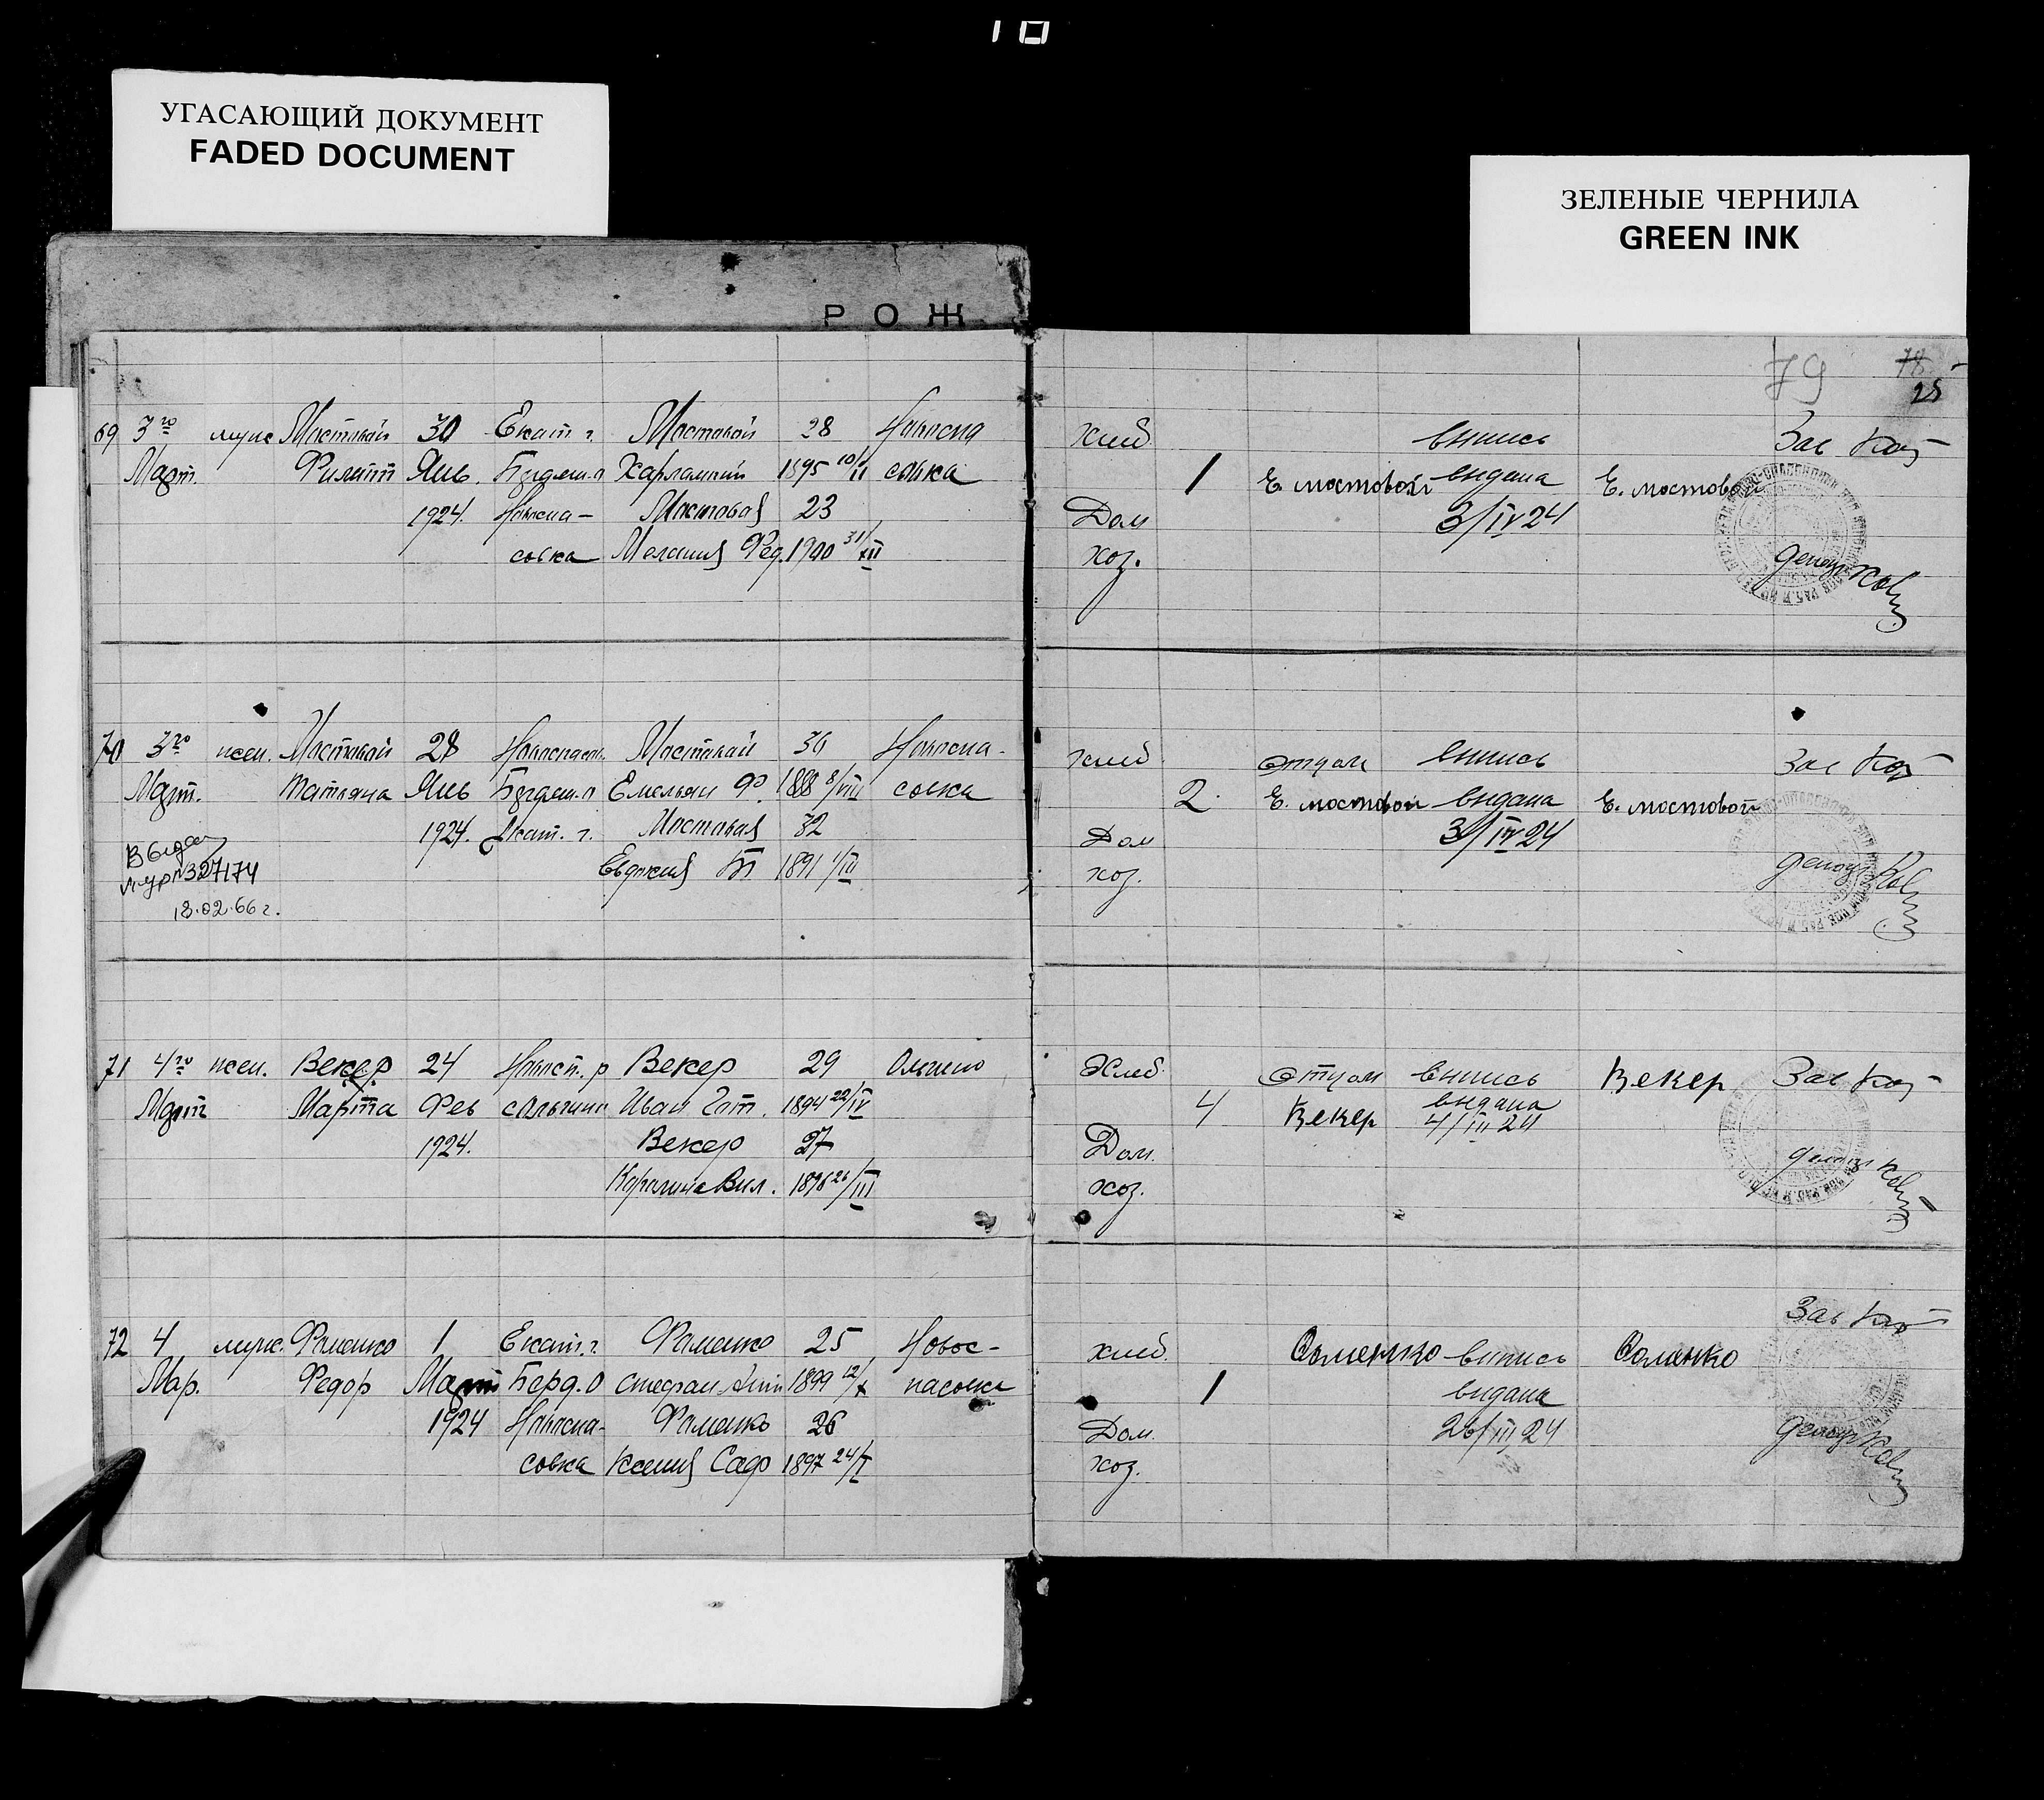 10
УГАСАЮЩИЙ ДОКУМЕНТ
FADED DOCUMENT
ЗЕЛЕНЫЕ ЧЕРНИЛА
GREEN INK
РОЖ
79
78
25
69 3го муж Мостовой 30 Екат г. Мостовой 28 Новоспа
Март. Филипп Янв. Бердян. о Харлампий 1895 10/II совка
1924. Новоспа- Мостовая 23
совка Мелания Фед. 1900 31/XII
Хлеб. 1 Е. мостовой выпись выдана 3/IV 24 Е. мостовой Зав
Дом
хоз.
70 3го жен. Мостовой 28 Мостовой 36 Новоспа-
Март. Татьяна Янв Бердян. о Емельян Ф. 1888 8/VIII совка
1924. Екат. г. Мостовая 32
Евдокия 1891 1/III
18.02.66 г.
хлеб 2. Отцом Е. мостовой выпись выдана 3/IV 24 Е. мостовой Зав
Дом
хоз.
71 4го жен. Векер 24 Векер 29
Март Марта Фев Иван Гот. 1894 22/IV
1924. Векер 27
Каролина Вил. 1896 26/III
Хлеб. 4 Отцом Векер выпись выдана 4/III 24 Векер Зав
Дом.
хоз.
72 4 муж. Фоменко 1 Екат. г. Фоменко 25 Новос-
Мар. Федор Март Берд. о Стефан 1899 12/X пасовка
1924 Новоспа- Фоменко 26
совка Ксения Саф 1897 24/I
хлеб. 1 Фоменко выпись выдана 26/III 24 Фоменко Зав
Дом.
хоз.